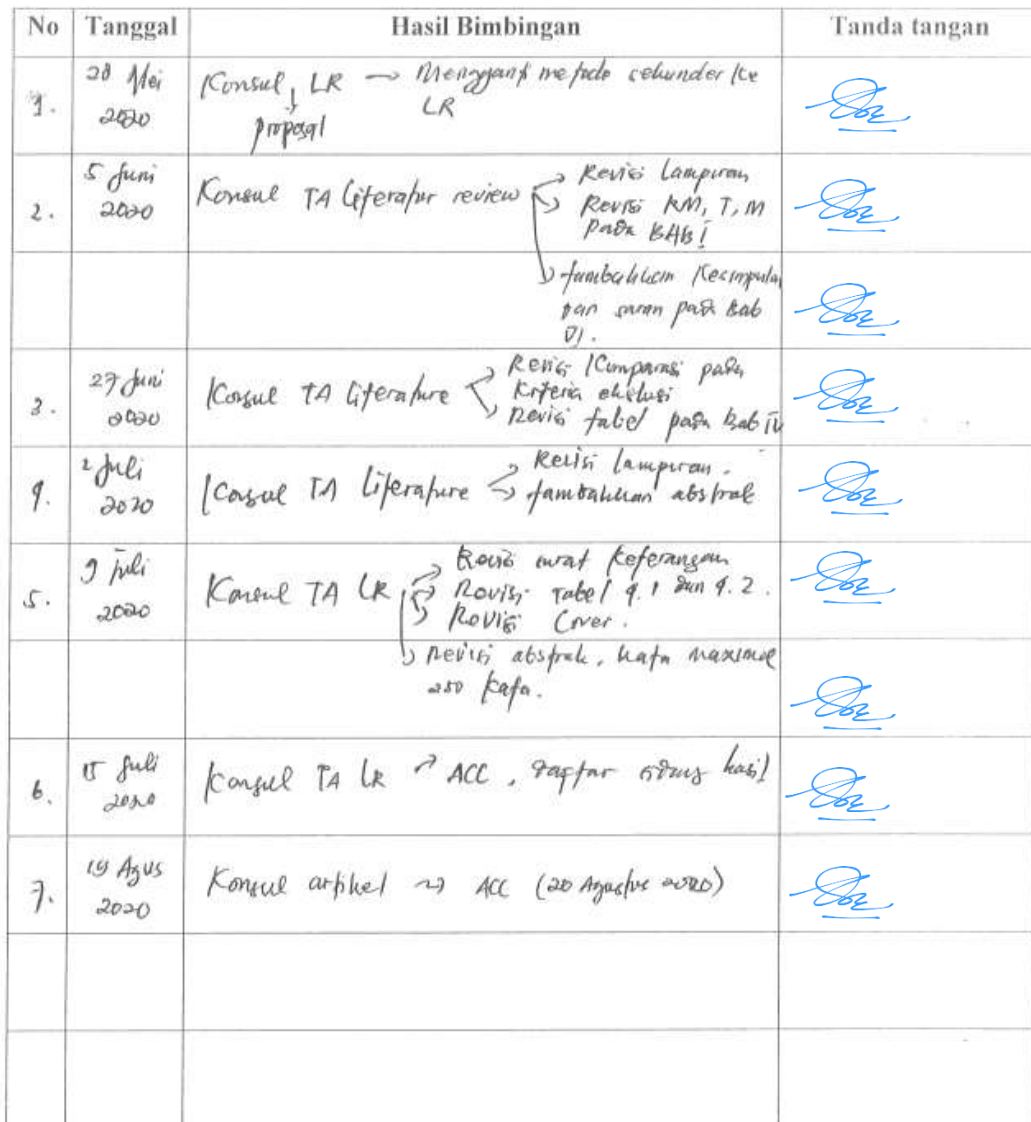 No Tanggal Hasil Bimbingan Tanda tangan
1. 28 Mei 2020 Konsul LR → Mengganti metode sekunder ke
LR
proposal
2. 5 Juni 2020 Konsul TA literatur review → Revisi Lampiran
→ Revisi RM, T, M
pada BAB I
→ tambahkan Kesimpulan
dan saran pada Bab
VI.
3. 27 Juni 2020 Konsul TA literature → Revisi Komparasi pada
kriteria eksklusi
→ Revisi tabel pada Bab IV
4. 2 Juli 2020 Konsul TA literature → Revisi lampiran.
→ tambahkan abstrak
5. 9 Juli 2020 Konsul TA LR → Revisi surat keterangan
→ Revisi Tabel 4.1 dan 4.2.
→ Revisi Cover.
→ Revisi abstrak, kata maximal
250 kata.
6. 15 Juli 2020 Konsul TA LR → ACC, daftar sidang hasil
7. 19 Agus 2020 Konsul artikel → ACC (20 Agustus 2020)